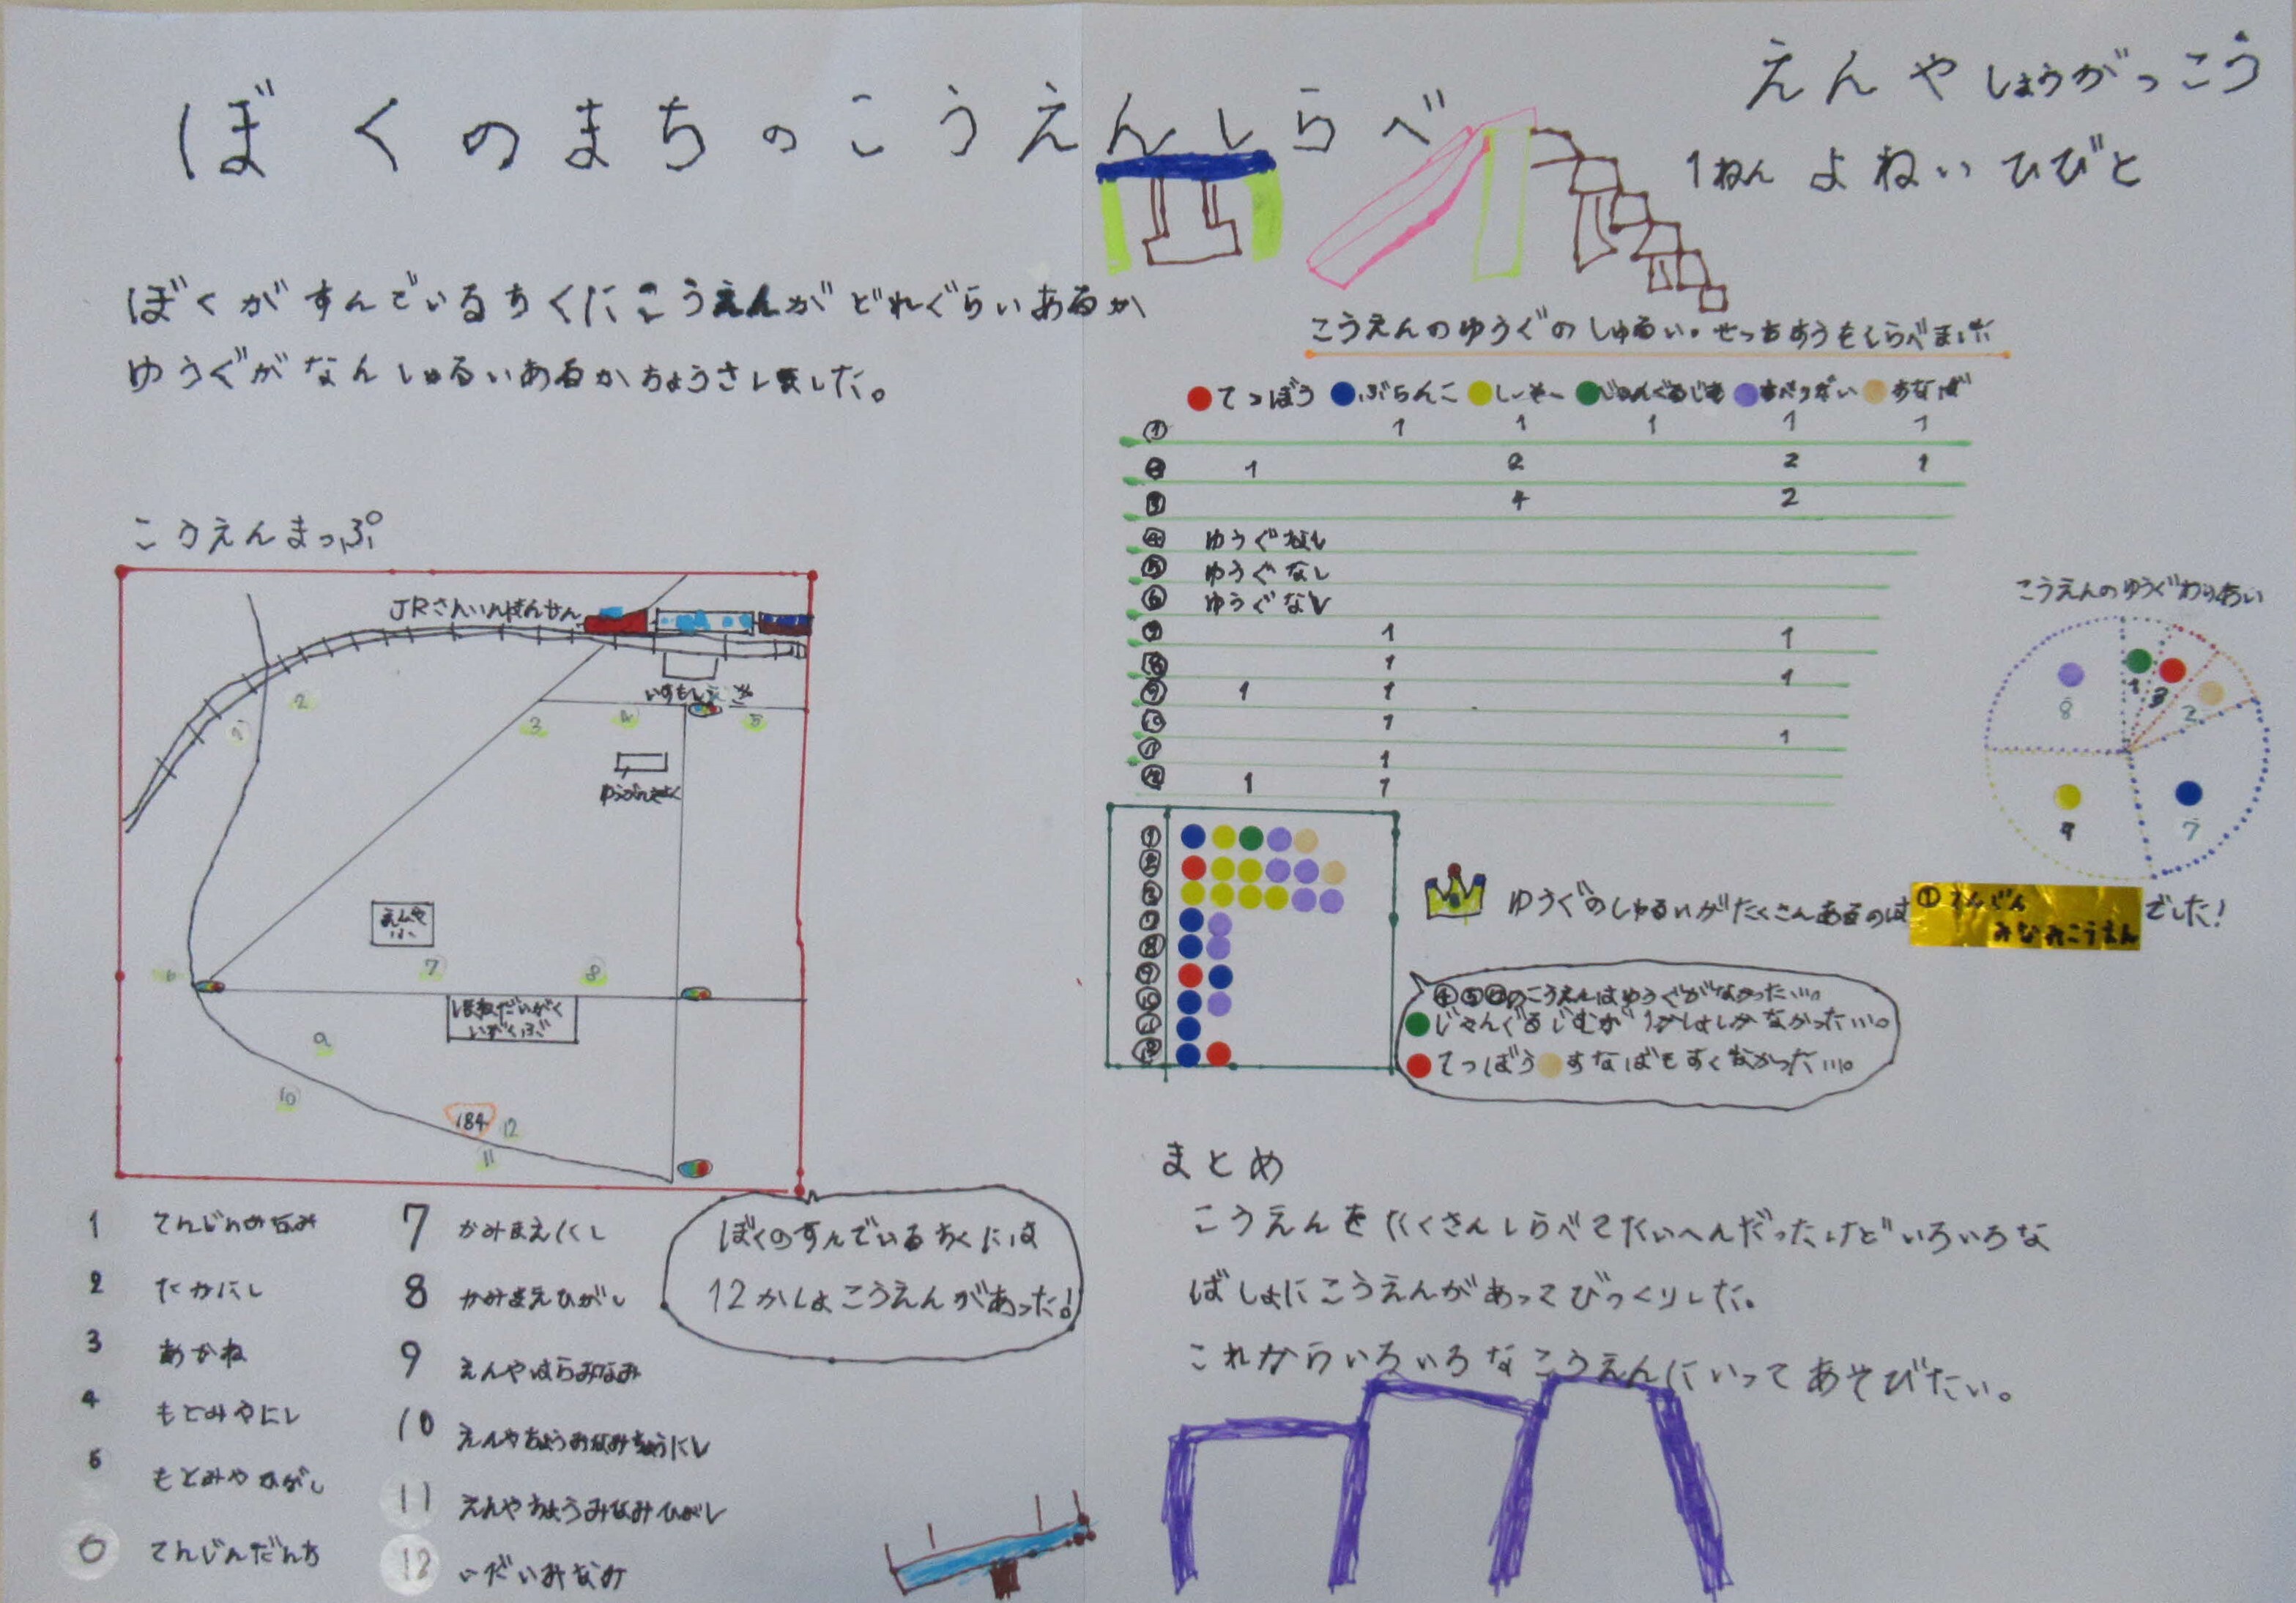 ぼくのまちのこうえんしらべ
えんやしょうがっこう
1ねん よねい ひびと
ぼくがすんでいるちくにこうえんがどれぐらいあるか
ゆうぐがなんしゅるいあるかちょうさしました。
こうえんまっぷ
JRさんいんほんせん
1
2
3
4
5
ゆうびんきょく
えんや
6
7
8
しまねだいがく
いがくぶ
9
10
184
12
11
1 てんじんみなみ
2 たかにし
3 あかね
4 もとみやにし
5 もとみやひがし
6 てんじんだんち
7 かみまえにし
8 かみまえひがし
9 えんやはらみなみ
10 えんやちょうみなみちょうにし
11 えんやちょうみなみひがし
12 いだいみなみ
ぼくのすんでいるちくには
12かしょこうえんがあった!
こうえんのゆうぐのしゅるい・せっちすうもしらべました
てつぼう ぶらんこ しーそー じゃんぐるじむ すべりだい すなば
① 1 1 1 1 1
② 1 2 2 1
③ 4 2
④ ゆうぐなし
⑤ ゆうぐなし
⑥ ゆうぐなし
⑦ 1 1
⑧ 1 1
⑨ 1 1
⑩ 1 1
⑪ 1
⑫ 1 1
こうえんのゆうぐわりあい
8
1
3
2
7
7
①
②
③
⑦
⑧
⑨
⑩
⑪
⑫
ゆうぐのしゅるいがたくさんあるのは ①てんじん
みなみこうえん でした!
④⑤⑥のこうえんはゆうぐがなかった…。
じゃんぐるじむが1かしょしかなかった…。
てつぼう すなばもすくなかった…。
まとめ
こうえんをたくさんしらべてたいへんだったけどいろいろな
ばしょにこうえんがあってびっくりした。
これからいろいろなこうえんにいってあそびたい。